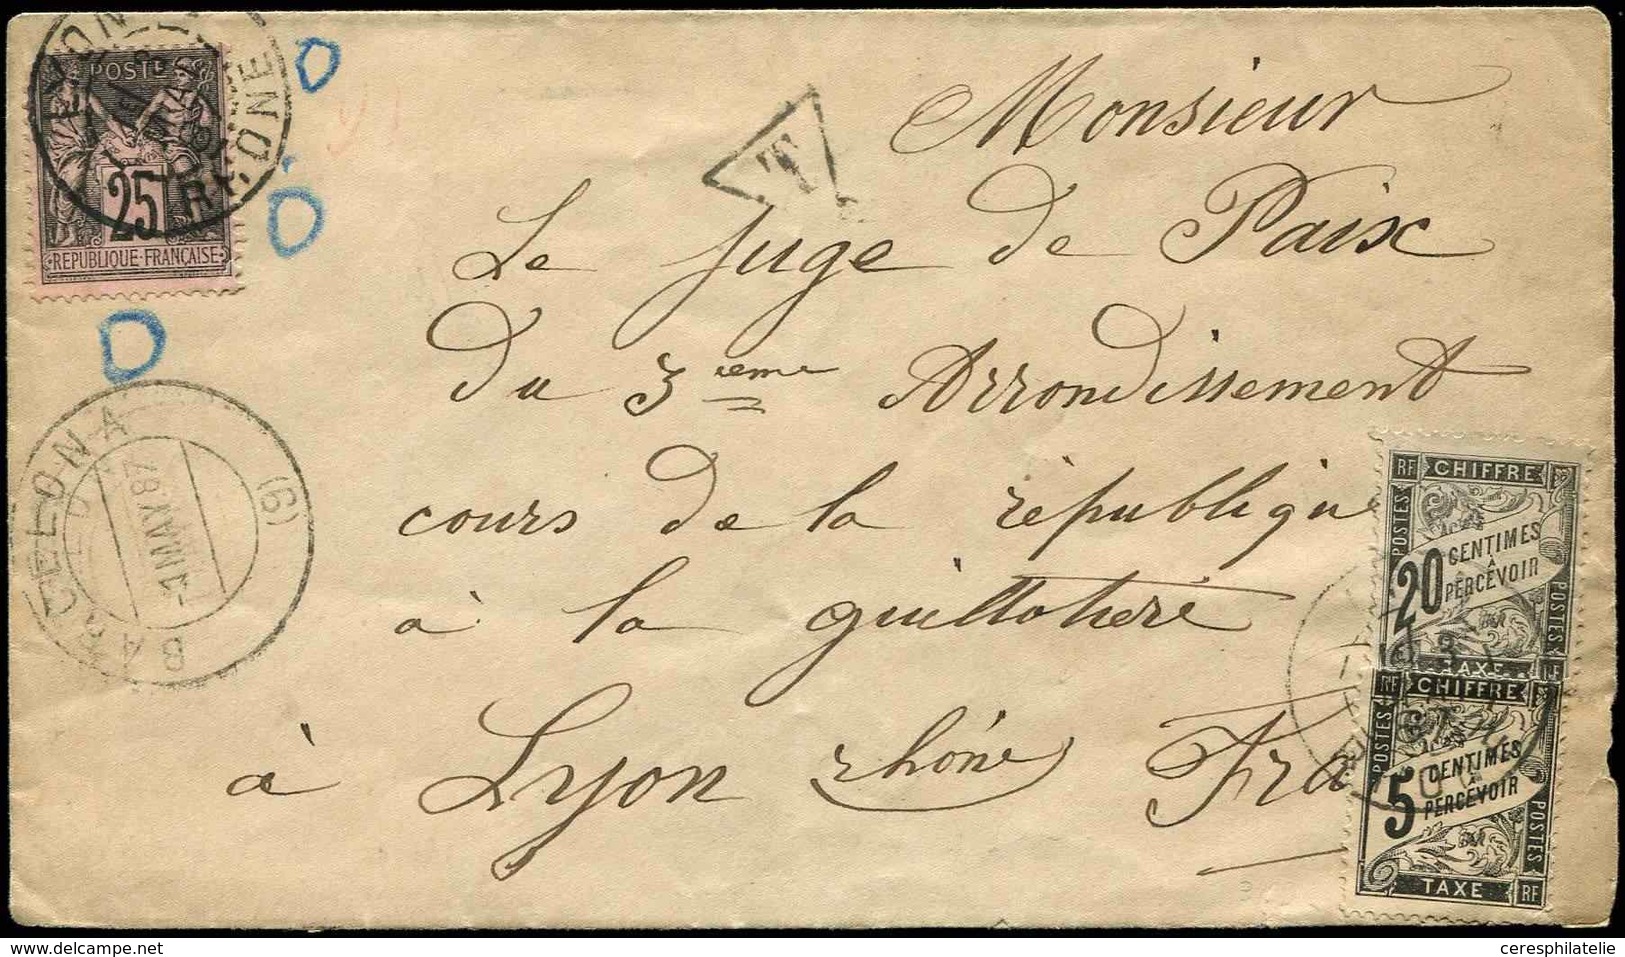 LYON
RHONE
POSTE
25
REPUBLIQUE·FRANÇAISE
T
Monsieur
Le juge de Paix
du 3ieme Arrondissement
cours de la république
à la guillotière
à Lyon rhône Fra
BARCELONA
(6)
-1MAY.87
RF CHIFFRE
POSTES
20 CENTIMES
À
PERCEVOIR
POSTES
TAXE
RF CHIFFRE
POSTES
5 CENTIMES
À
PERCEVOIR
POSTES
TAXE RF
delcampe.net
ceresphilatelie